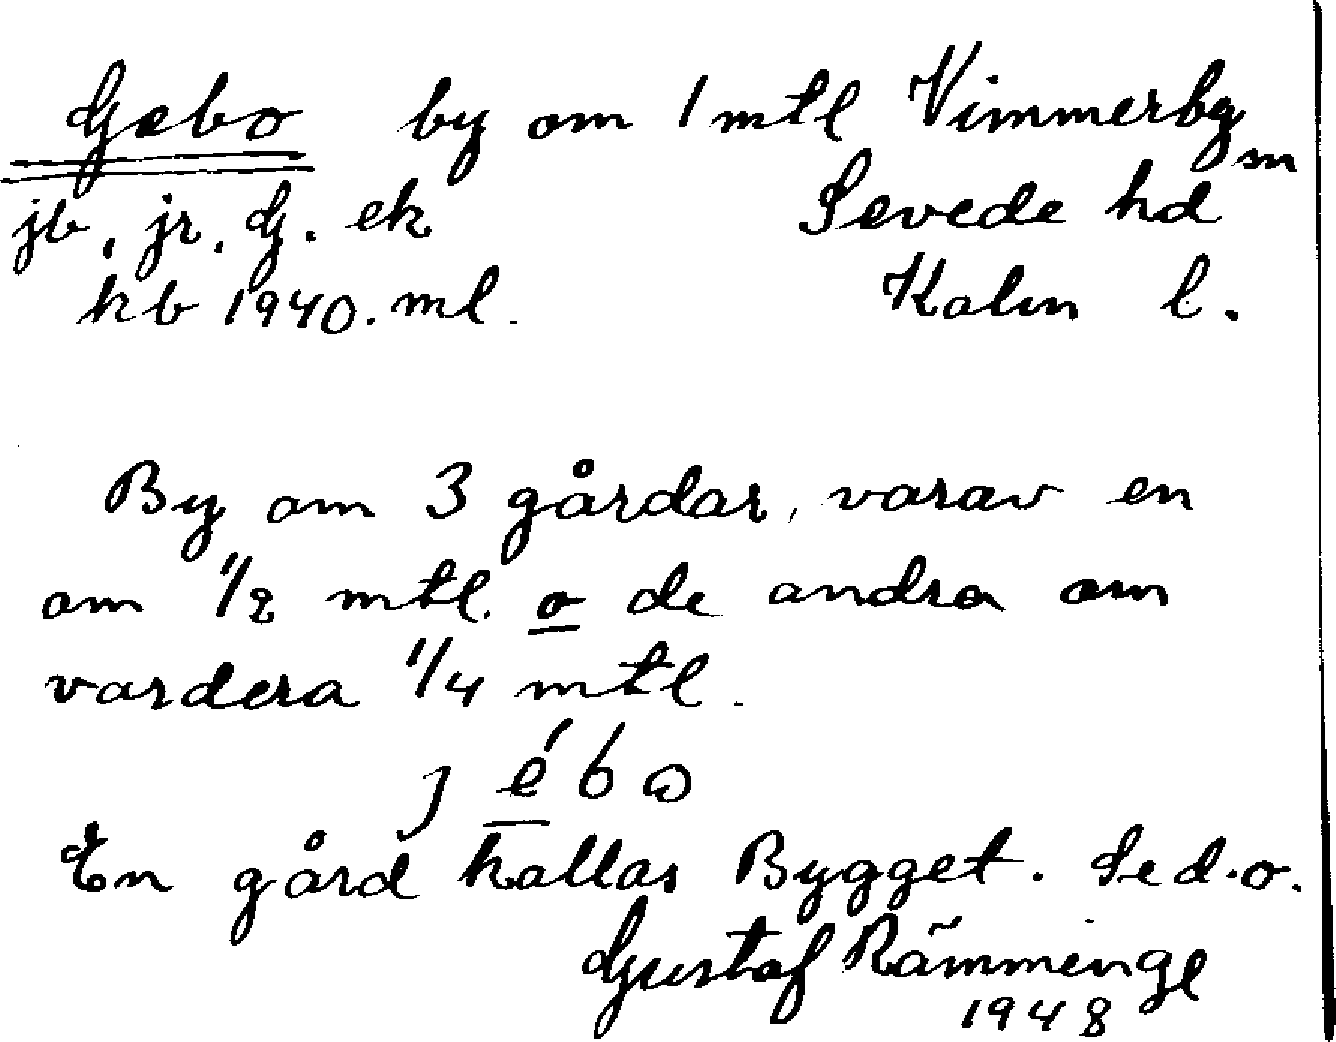 Gebo by om 1 mtl Vimmerby sn
jb, jr, G. ek Sevede hd
kb 1940. ml. Kalm l.
By om 3 gårdar, varav en
om 1/2 mtl. o de andra om
vardera 1/4 mtl.
j é b ω
En gård kallas Bygget. Se d.o.
Gustaf Rämminge
1948